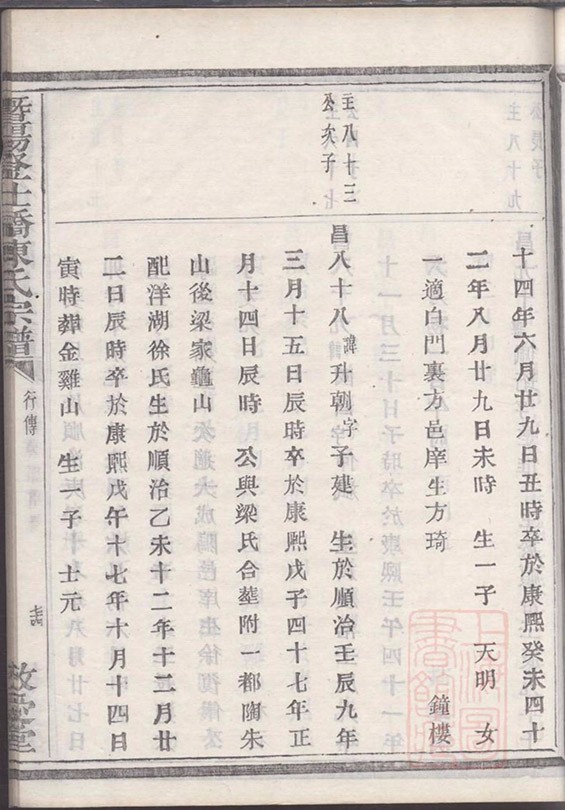 十四年六月廿九日丑時卒於康熙癸未四十
二年八月廿九日未時　生一子　天明　女
一適白門裏方邑庠生方琦　鐘樓
主八十三
公次子
昌八十八諱升朝字子建　生於順治壬辰九年
三月十五日辰時卒於康熙戊子四十七年正
月十四日辰時　公與梁氏合塟附一都陶朱
山後梁家龜山
配洋湖徐氏生於順治乙未十二年十二月廿
二日辰時卒於康熙戊午十七年十月十四日
寅時葬金雞山　生一子　士元
暨陽登仕橋陳氏宗譜
行傳